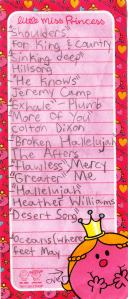 little Miss Princess
"Shoulders"
for King & Country
"Sinking deep"
Hillsong
"He Knows"
Jeremy Camp
"Exhale" - Plumb
"More of You"
Colton Dixon
"Broken Hallelujah"
The Afters
"Flawless" Mercy
"Greater" Me
"Hallelujah"
Heather Williams
Desert Song
Oceans (where
feet May